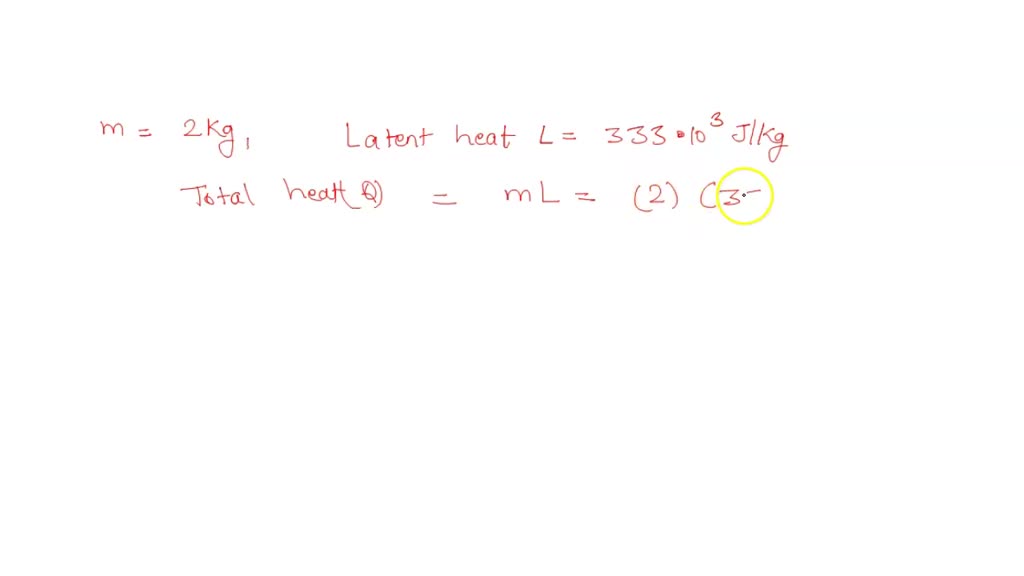 m = 2Kg, Latent heat L = 333•10³ J/Kg
Total heat(Q) = mL = (2) (3